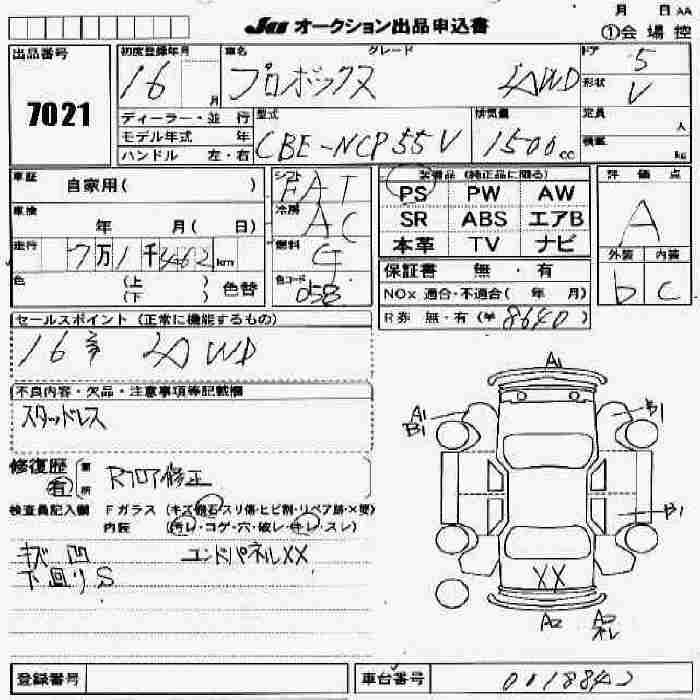 月 日 AA
JAA オークション出品申込書 ①会場控
出品番号 7021
初度登録年月 16 月
車名 プロボックス グレード 2/4WD
ドア 5
形状 V
ディーラー・並行
モデル年式 年
ハンドル 左・右
型式 CBE-NCP55V
排気量 1500cc
定員 人
積載 kg
車証 自家用( )
車検 年 月( 日)
走行 7万1千462km
色 (上 )(下 ) 色替
シフト FAT
冷房 AC
燃料 G
色コード 058
装備品 (純正品に限る)
PS PW AW
SR ABS エアB
本革 TV ナビ
保証書 無・有
NOx 適合・不適合( 年 月)
R券 無・有(¥ 8640)
評価点 A
外装 b 内装 C
セールスポイント (正常に機能するもの)
16年 4WD
不良内容・欠品・注意事項等記載欄
スタッドレス
修復歴 有 箇所 Rフロア修正
検査員記入欄 Fガラス (キズ・飛石・スリ傷・ヒビ割・リペア跡・×要)
内装 (汚レ・コゲ・穴・破レ・キレ・スレ)
キズ 凹 エンドパネルXX
下廻りS
A1
A1
B1
B1
B1
XX
A2
A2
オレ
登録番号
車台番号 0018842